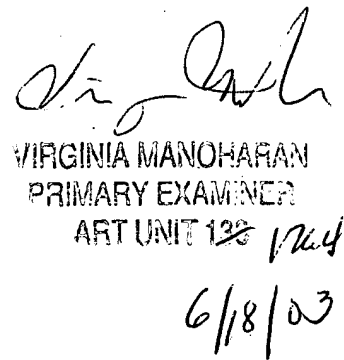 VIRGINIA MANOHARAN
PRIMARY EXAMINER
ART UNIT 1764
6/18/03